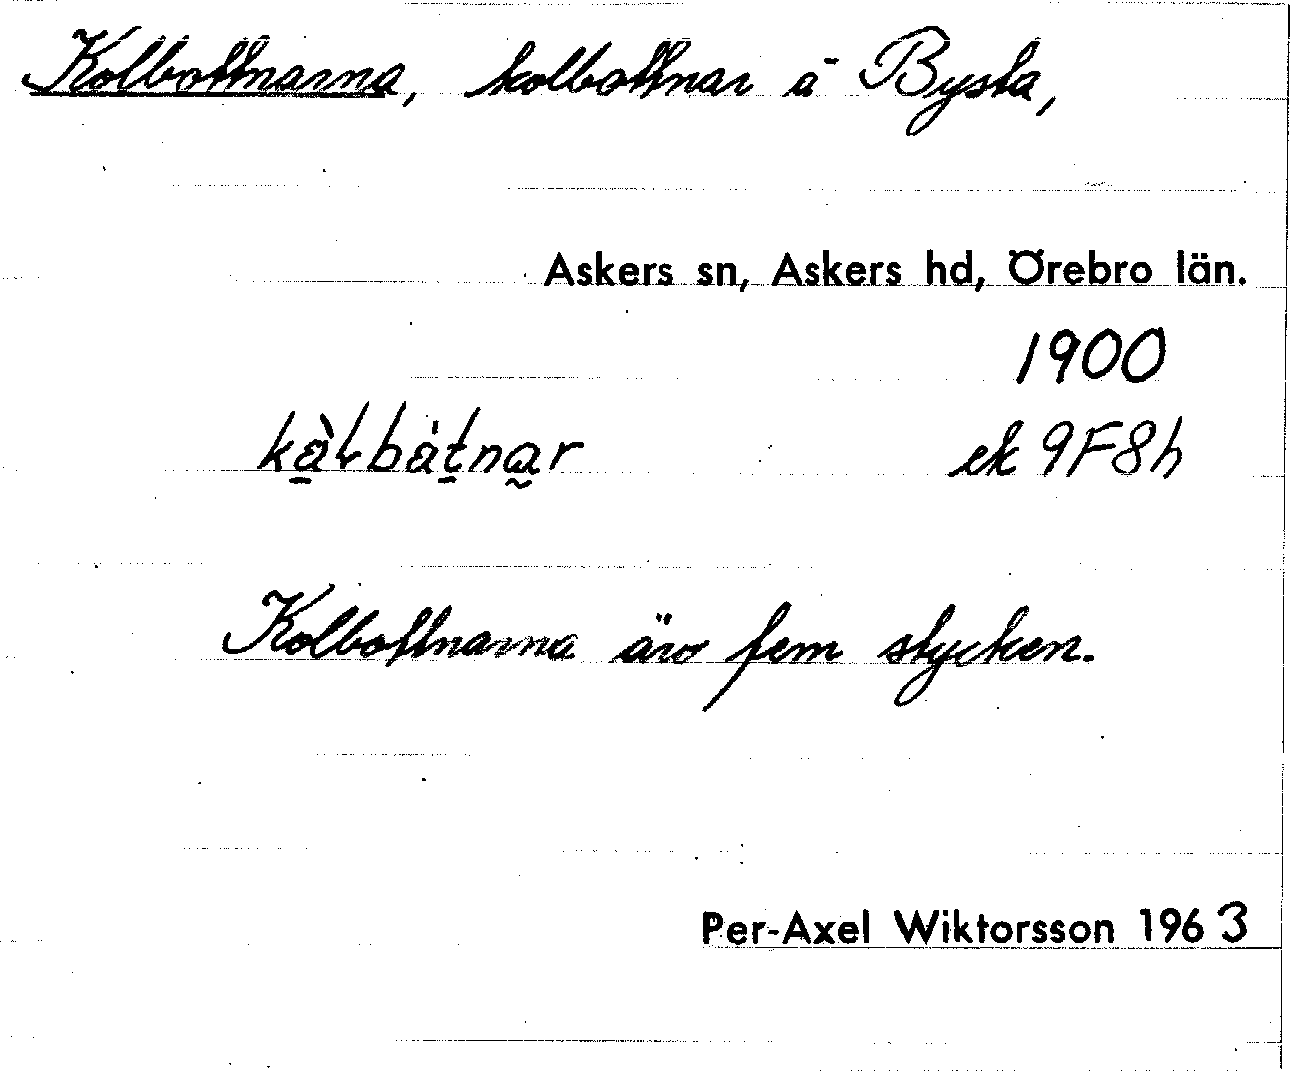 Kolbottnarna, kolbottnar å Bysta,
Askers sn, Askers hd, Örebro län.
1900
ek 9F8h
Kolbottnarna äro fem stycken.
Per-Axel Wiktorsson 1963